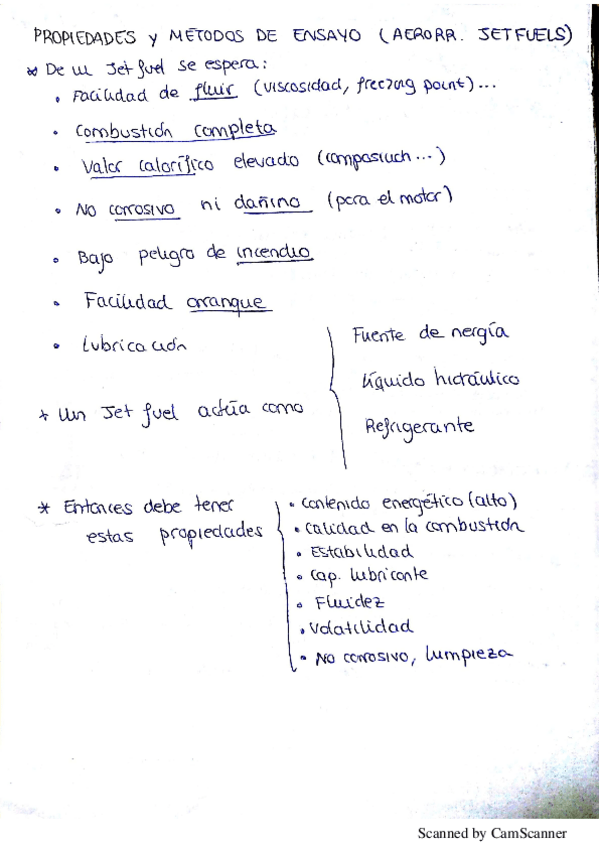 PROPIEDADES y METODOS DE ENSAYO (AERORR. JETFUELS)
* De un Jet fuel se espera:
• Facilidad de fluir (viscosidad, freezing point)...
• Combustión completa
• Valor calorífico elevado (composiuch...)
• No corrosivo ni dañino (para el motor)
• Bajo peligro de incendio
• Facilidad arranque
• Lubricación
+ Un Jet fuel actúa como
Fuente de nergía
Líquido hidráulico
Refrigerante
* Entonces debe tener
estas propiedades
• Contenido energético (alto)
• Calidad en la combustión
• Estabilidad
• Cap. lubricante
• Fluidez
• Volatilidad
• No corrosivo, Lumpieza
Scanned by CamScanner